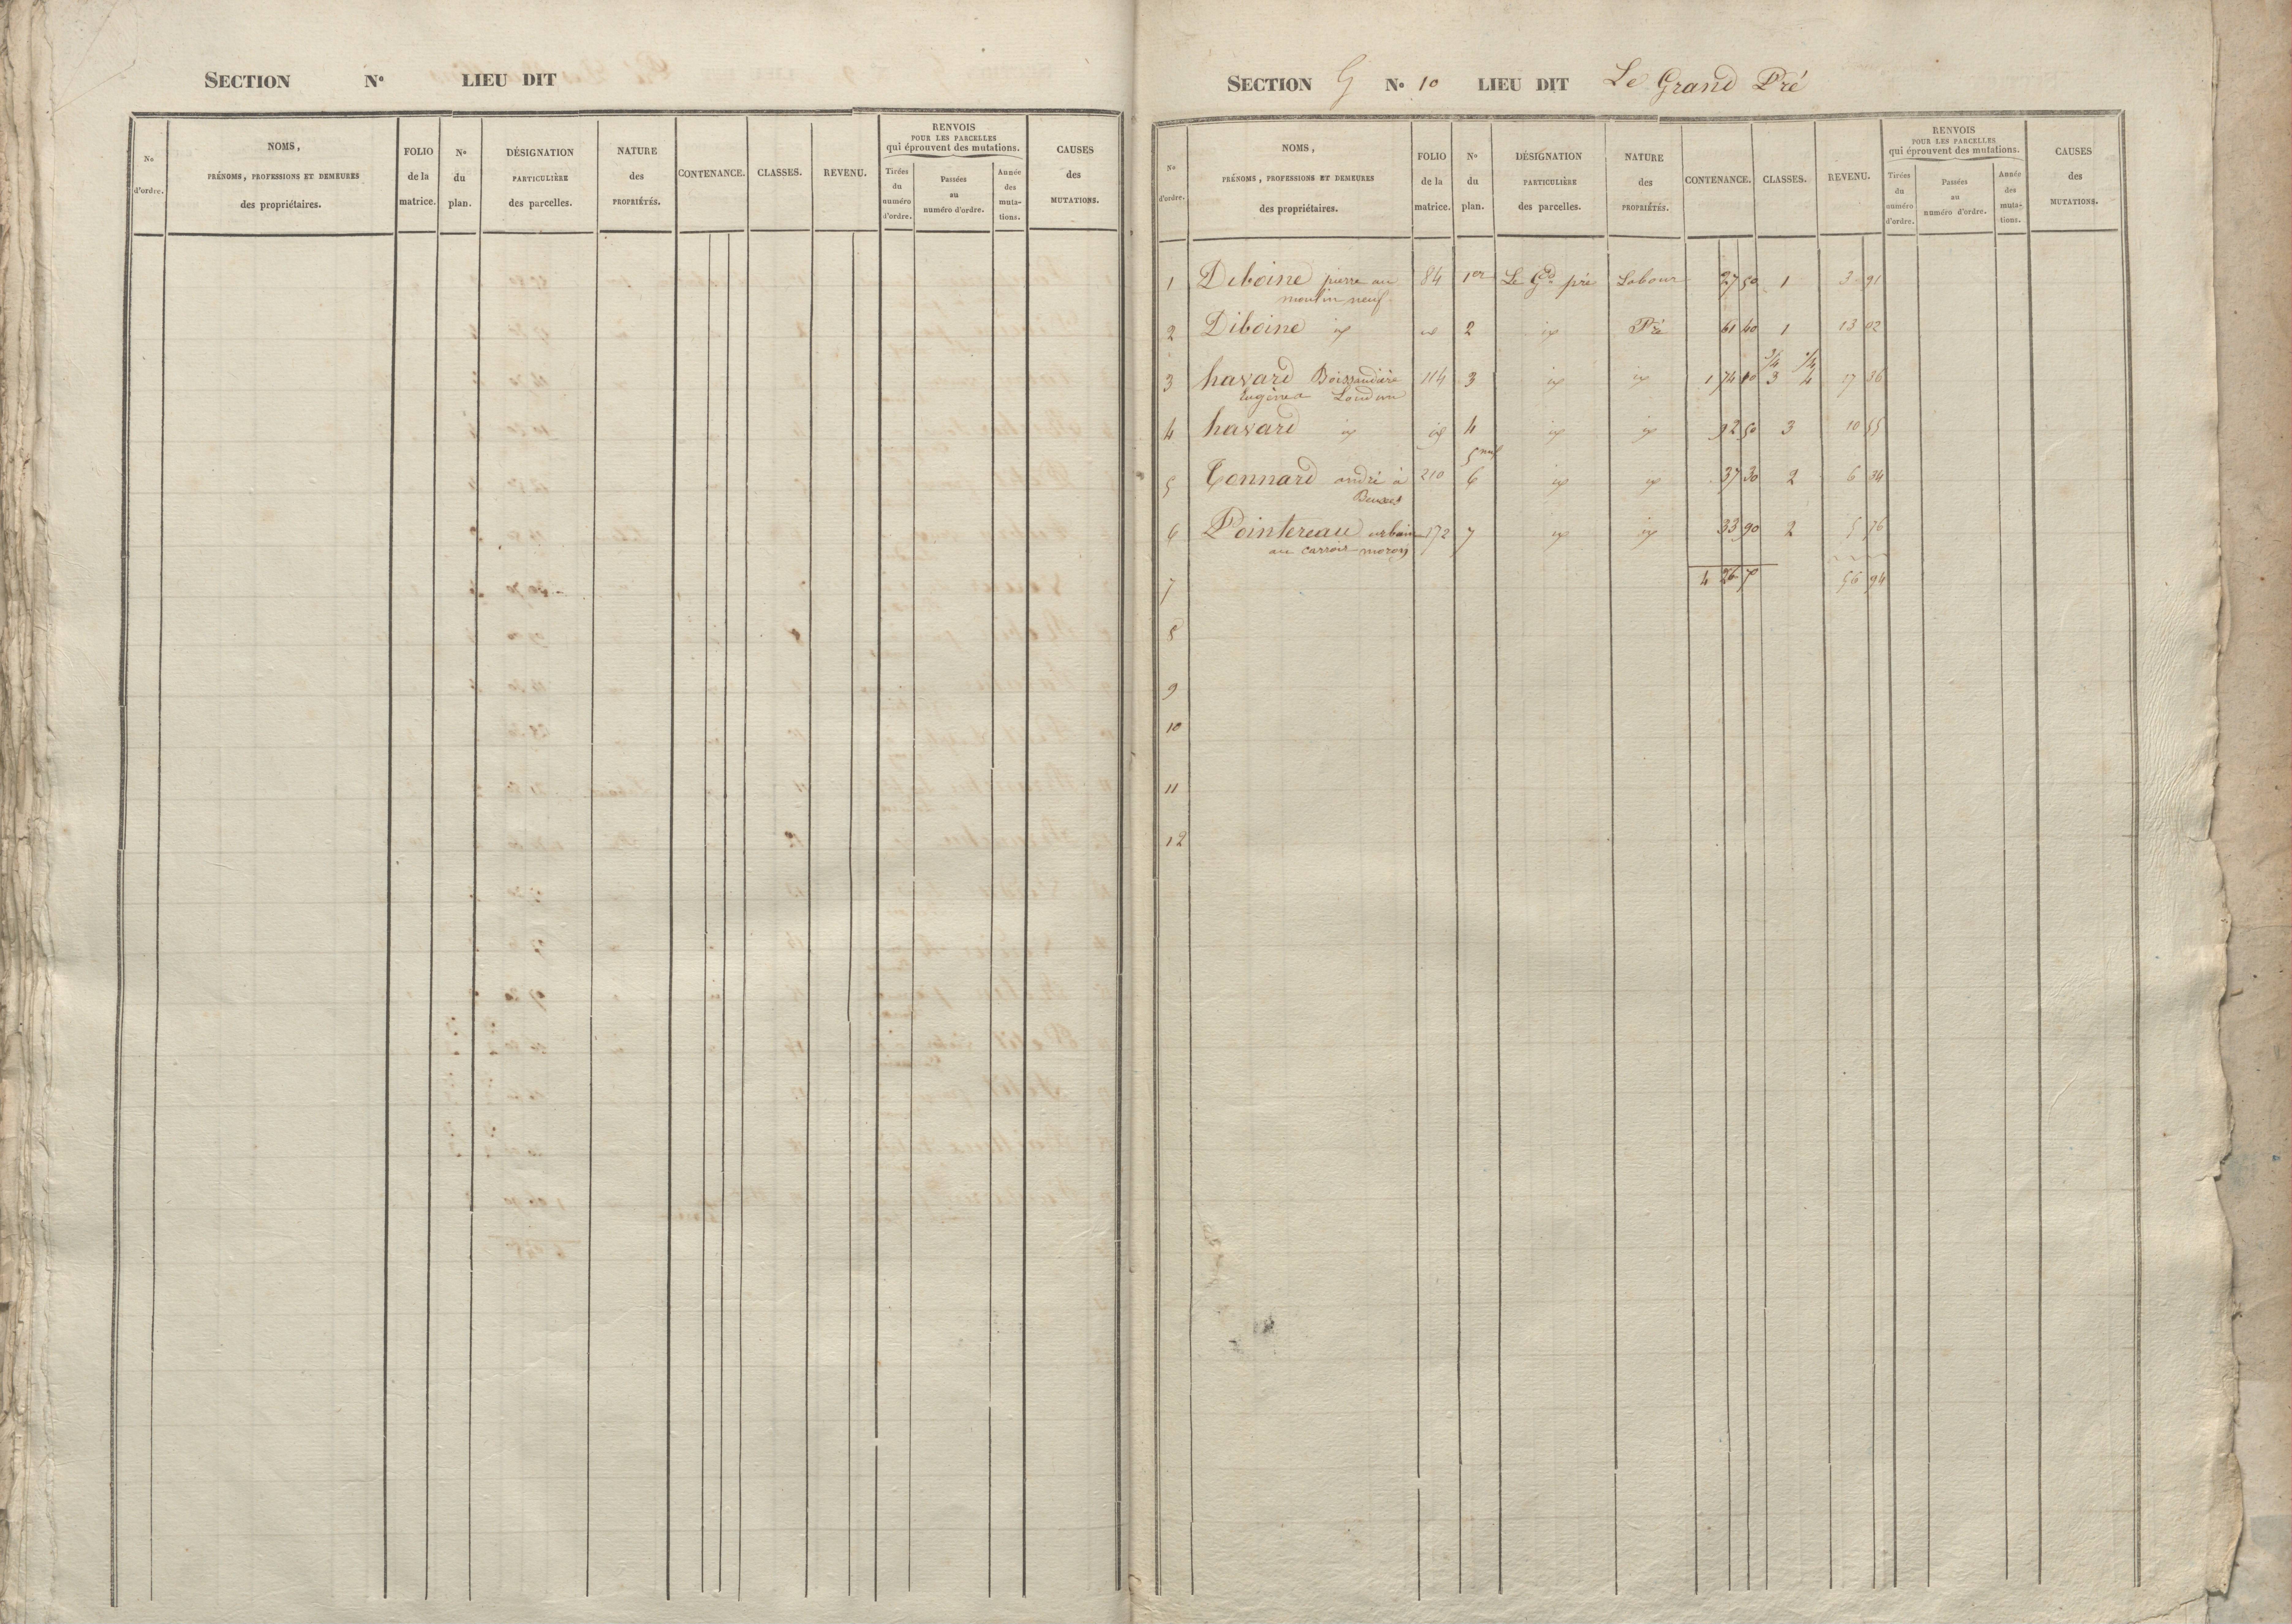 SECTION N° LIEU DIT
N° d'ordre.
NOMS,
PRÉNOMS, PROFESSIONS ET DEMEURES
des propriétaires.
FOLIO
de la
matrice.
N°
du
plan.
DÉSIGNATION
PARTICULIÈRE
des parcelles.
NATURE
des
PROPRIÉTÉS.
CONTENANCE.
CLASSES.
REVENU.
RENVOIS
POUR LES PARCELLES
qui éprouvent des mutations.
Tirées
du
numéro
d'ordre.
Passées
au
numéro d'ordre.
Année
des
muta-
tions.
CAUSES
des
MUTATIONS.
SECTION G N° 10 LIEU DIT Le Grand Pré
N°
d'ordre.
NOMS,
PRÉNOMS, PROFESSIONS ET DEMEURES
des propriétaires.
FOLIO
de la
matrice.
N°
du
plan.
DÉSIGNATION
PARTICULIÈRE
des parcelles.
NATURE
des
PROPRIÉTÉS.
CONTENANCE.
CLASSES.
REVENU.
RENVOIS
POUR LES PARCELLES
qui éprouvent des mutations.
Tirées
du
numéro
d'ordre.
Passées
au
numéro d'ordre.
Année
des
muta-
tions.
CAUSES
des
MUTATIONS.
1 Diboine pierre au 84 1er Le Gd pré Labour 27 50 1 3 91
moulin neuf
2 Diboine id id 2 id Pré 61 40 1 13 02
3/4 1/4
3 havard Boissaudière 114 3 id id 1 74 10 3 4 17 36
Eugène a Loudun
4 havard id id 4 id id 92 50 3 10 55
5 nul
5 Connard andré à 210 6 id id 37 30 2 6 34
6 Pointereau urbain 172 7 id id 33 90 2 5 76
au carroir
7 4 26 7 56 94
8
9
10
11
12